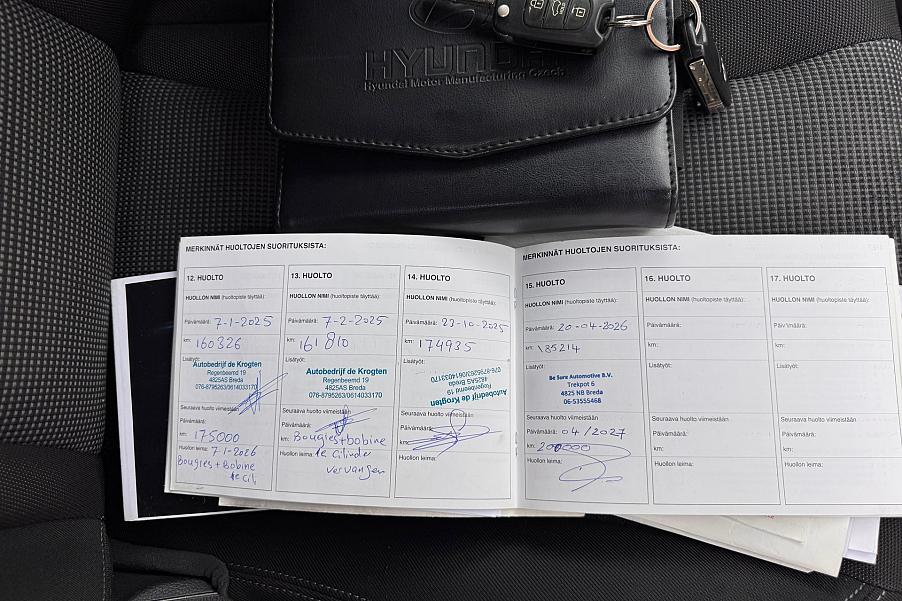 HYUNDAI
Hyundai Motor Manufacturing Czech
MERKINNÄT HUOLTOJEN SUORITUKSISTA:
12. HUOLTO
HUOLLON NIMI (huoltopiste täyttää):
Päivämäärä: 7-1-2025
km: 160326
Lisätyöt:
Autobedrijf de Krogten
Regenbeemd 19
4825AS Breda
076-8795263/0614033170
Seuraava huolto viimeistään
Päivämäärä:
km: 175000
Huollon leima: 7-1-2026
Bougies + Bobine
1e cili
13. HUOLTO
HUOLLON NIMI (huoltopiste täyttää):
Päivämäärä: 7-2-2025
km: 161810
Lisätyöt:
Autobedrijf de Krogten
Regenbeemd 19
4825AS Breda
076-8795263/0614033170
Seuraava huolto viimeistään
Päivämäärä:
km: Bougies + bobine
Huollon leima: 1e Cilinder
vervangen
14. HUOLTO
HUOLLON NIMI (huoltopiste täyttää):
Päivämäärä: 23-10-2025
km: 174935
Lisätyöt:
Autobedrijf de Krogten
Regenbeemd 19
4825AS Breda
076-8795263/0614033170
Seuraava huolto viimeistään
Päivämäärä:
km:
Huollon leima:
MERKINNÄT HUOLTOJEN SUORITUKSISTA:
15. HUOLTO
HUOLLON NIMI (huoltopiste täyttää):
Päivämäärä: 20-04-2026
km: 185214
Lisätyöt:
Be Sure Automotive B.V.
Trekpot 6
4825 NB Breda
06-53555468
Seuraava huolto viimeistään
Päivämäärä: 04/2027
km: 200000
Huollon leima:
16. HUOLTO
HUOLLON NIMI (huoltopiste täyttää):
Päivämäärä:
km:
Lisätyöt:
Seuraava huolto viimeistään
Päivämäärä:
km:
Huollon leima:
17. HUOLTO
HUOLLON NIMI (huoltopiste täyttää):
Päivämäärä:
km:
Lisätyöt:
Seuraava huolto viimeistään
Päivämäärä:
km:
Huollon leima: